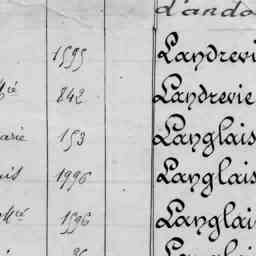 d'ando
1595 Landrevi
842 Landrevie
arie 153 Langlais
uis 1996 Langlais
1596 Langlai